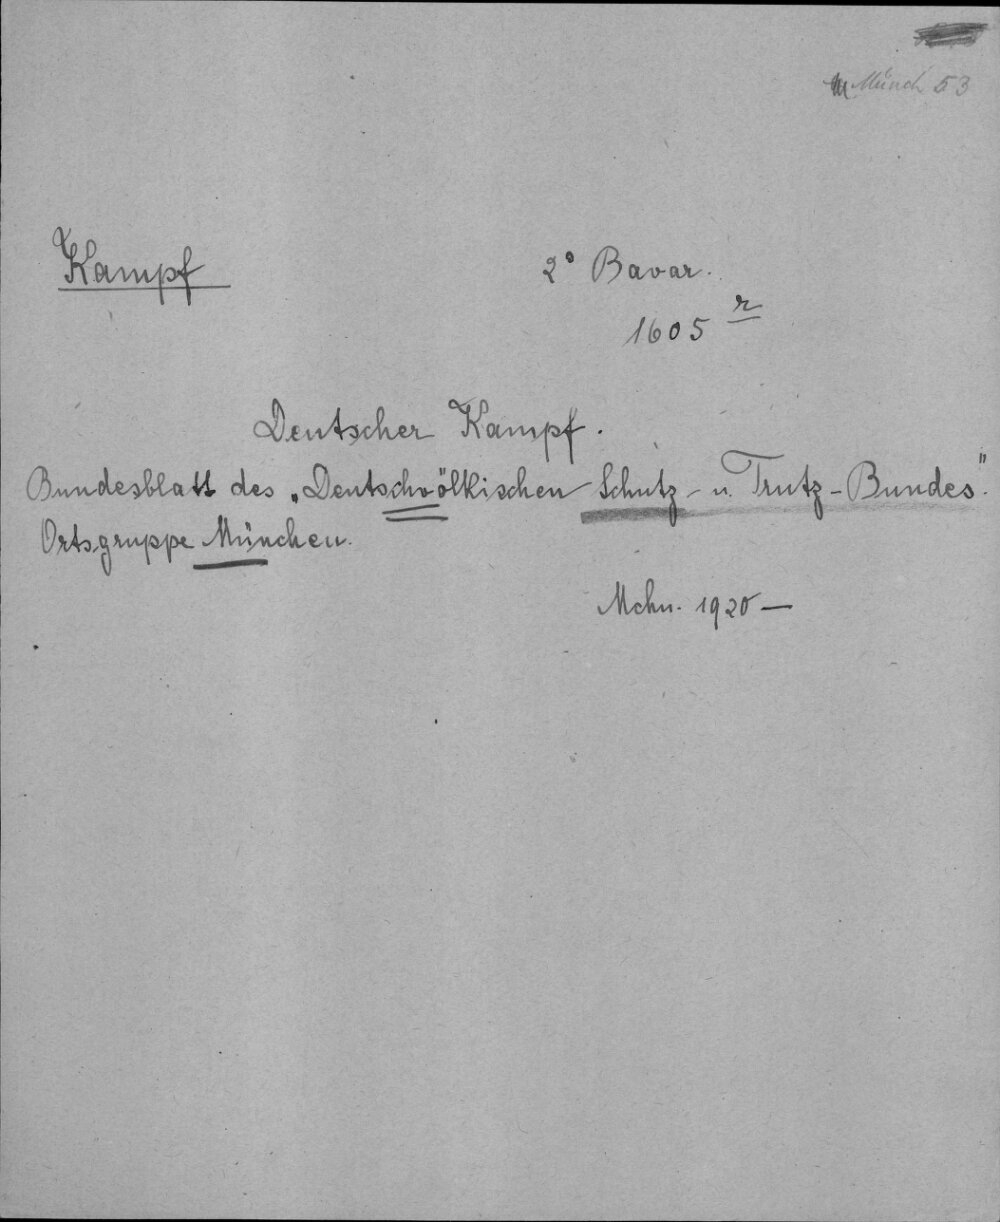 Münch 53
Kampf
2° Bavar.
1605 r
Deutscher Kampf.
Bundesblatt des „Deutschvölkischen Schutz- u. Trutz-Bundes".
Ortsgruppe München.
Mchn. 1920 —